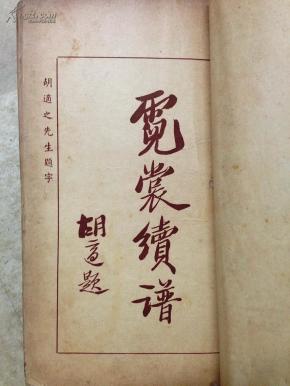 胡適之先生題字
霓裳續谱
胡適題